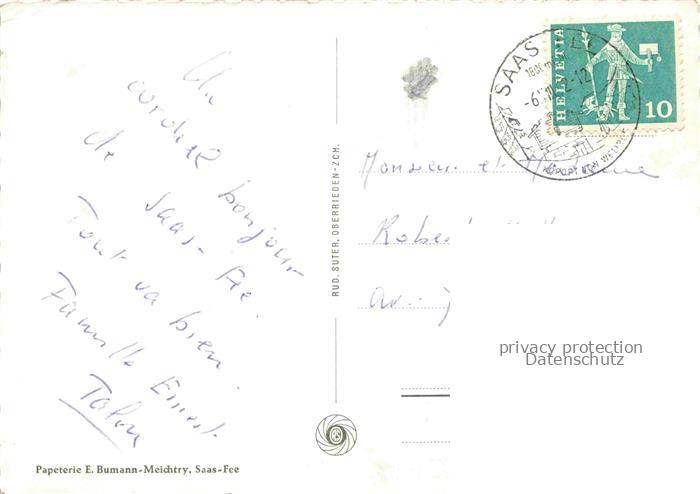 Un
cordial bonjour
de Saas-Fee.
Tout va bien.
Famille Ernest
Papeterie E. Bumann-Meichtry, Saas-Fee
RUD. SUTER, OBERRIEDEN-ZCH.
SAAS-FEE
1800 m
HELVETIA
10
KURORT VON WELTRUF
Monsieur et Madame
privacy protection
Datenschutz